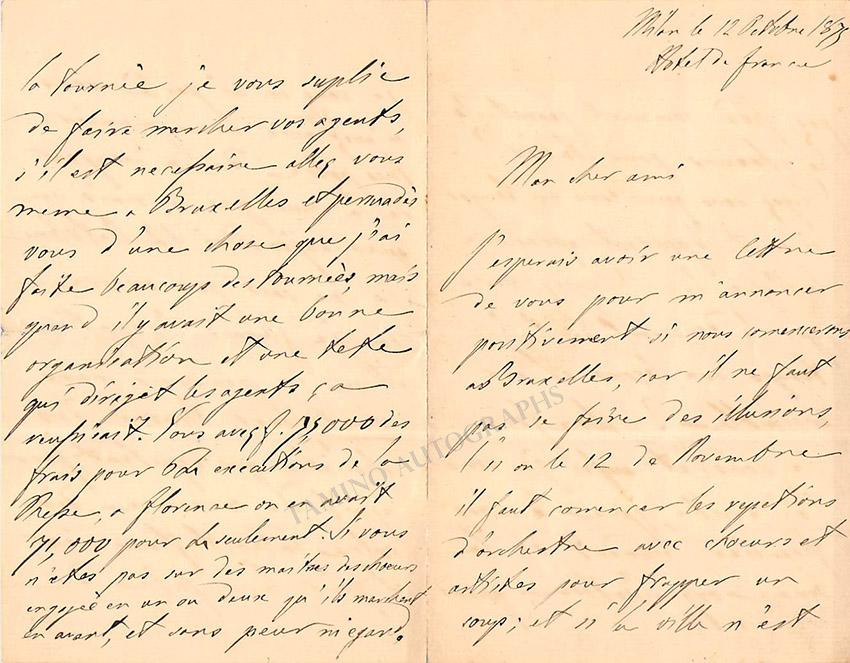 Milan le 12 Octobre 1875
Hotel de france
Mon cher ami
J'esperais avoir une lettre
de vous pour m'annoncer
positivement si nous comencerons
a Bruxelles, car il ne faut
pas se faire des illusions,
si on le 12 de Novembre
il faut comencer les repetitions
d'orchestre avec choeurs et
artistes pour frapper un
coup; et si la ville n'est
la tournèe je vous suplie
de faire marcher vos agents,
s'il est necessaire allez vous
meme a Bruxelles et persuadès
vous d'une chose que j'ai
faite beaucoups des tournèes, mais
quand il y avait une bonne
organisation et une tete
qui diriget les agents ça
reussicait. Vous avez f. 75,000 des
frais pour executions de la
Messe, a florence on en avait
71,000 pour seulement. Si vous
n'etes pas sur des maitres des choeurs
engagèe en un ou deux qu'ils marchent
en avant, et sans peur
TAMINO AUTOGRAPHS